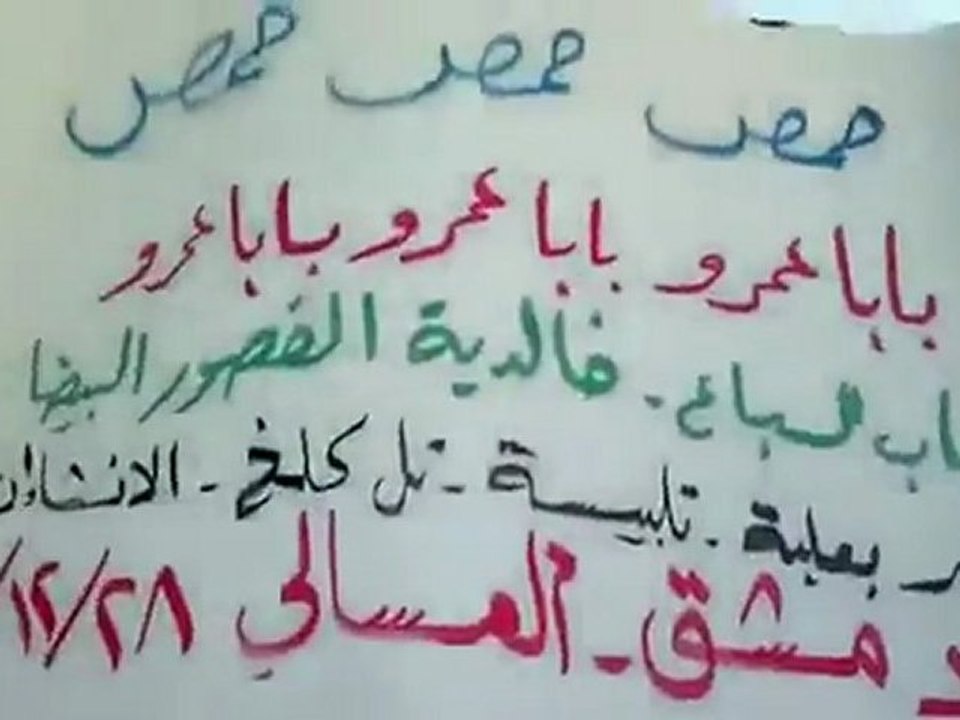 حمص حمص حمص
بابا عمرو بابا عمرو بابا عمرو
باب السباع - خالدية القصور البيضا
بعلبة - تلبيسة - تل كلخ - الانشاءات
دمشق - العسالي ١٢/٢٨/